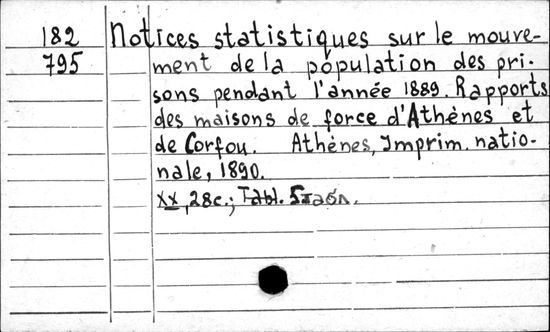 182 Notices statistiques sur le mouve-
795 ment de la population des pri-
sons pendant l'année 1889. Rapports
des maisons de force d'Athènes et
de Corfou. Athènes, Imprim. natio-
nale, 1890.
XX, 28c.;